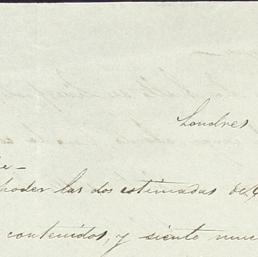 Londres
poder las dos estimadas de
contenidos, y siento